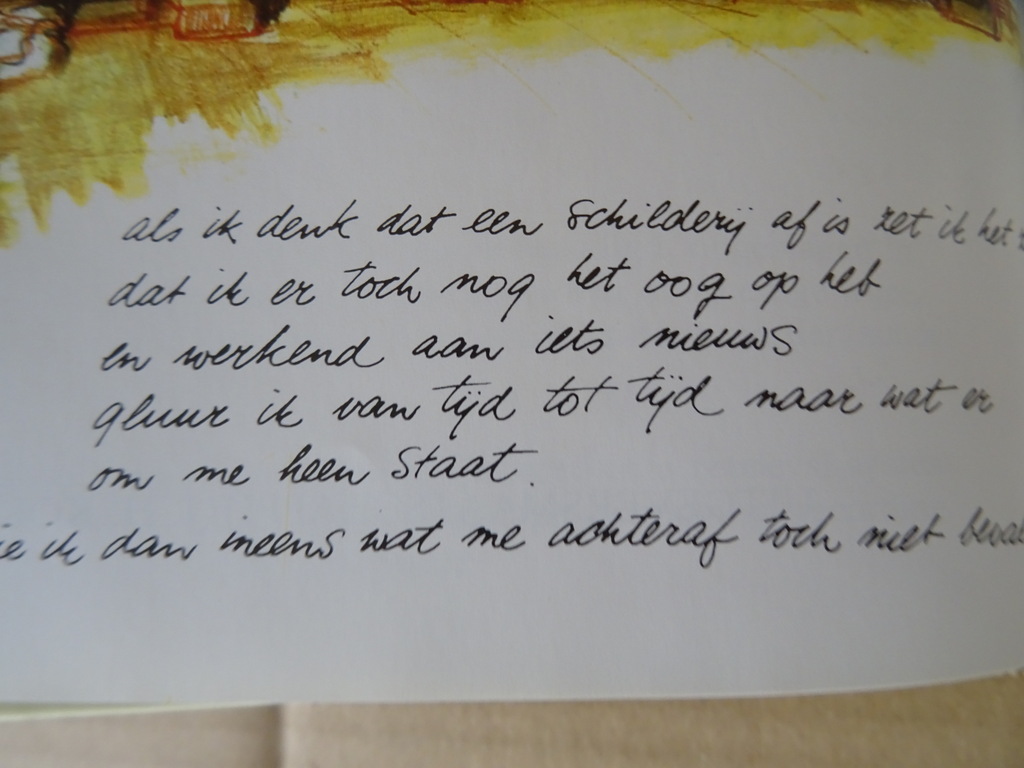 als ik denk dat een schilderij af is zet ik het
dat ik er toch nog het oog op heb
en werkend aan iets nieuws
gluur ik van tijd tot tijd naar wat er
om me heen staat.
ik dan ineens wat me achteraf toch niet